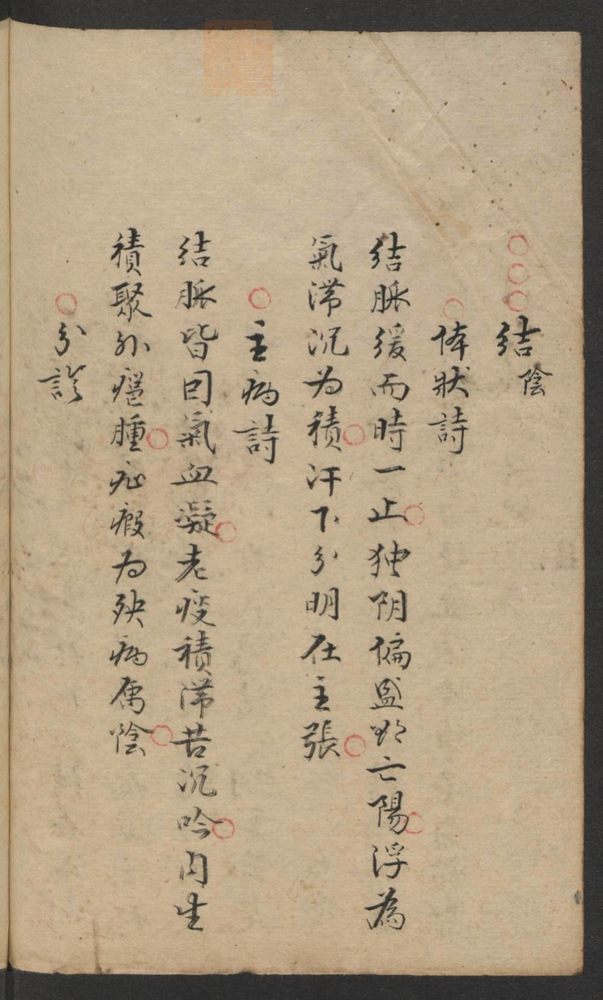 ○○○結陰
○体狀詩
结脉缓而時一止○独阴偏盛欲亡陽○浮為
氣滞沉为積○汗下分明在主張○
○主病詩
结脉皆因氣血凝○老痰積滞苦沉吟○内生
積聚外癰腫○疝瘕为殃病属陰○
○分診